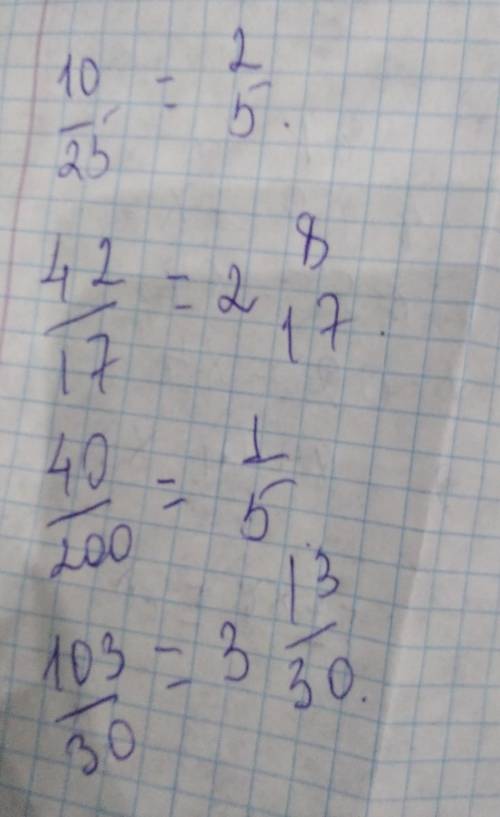 10/25 = 2/5.
42/17 = 2 8/17.
40/200 = 1/5.
103/30 = 3 13/30.